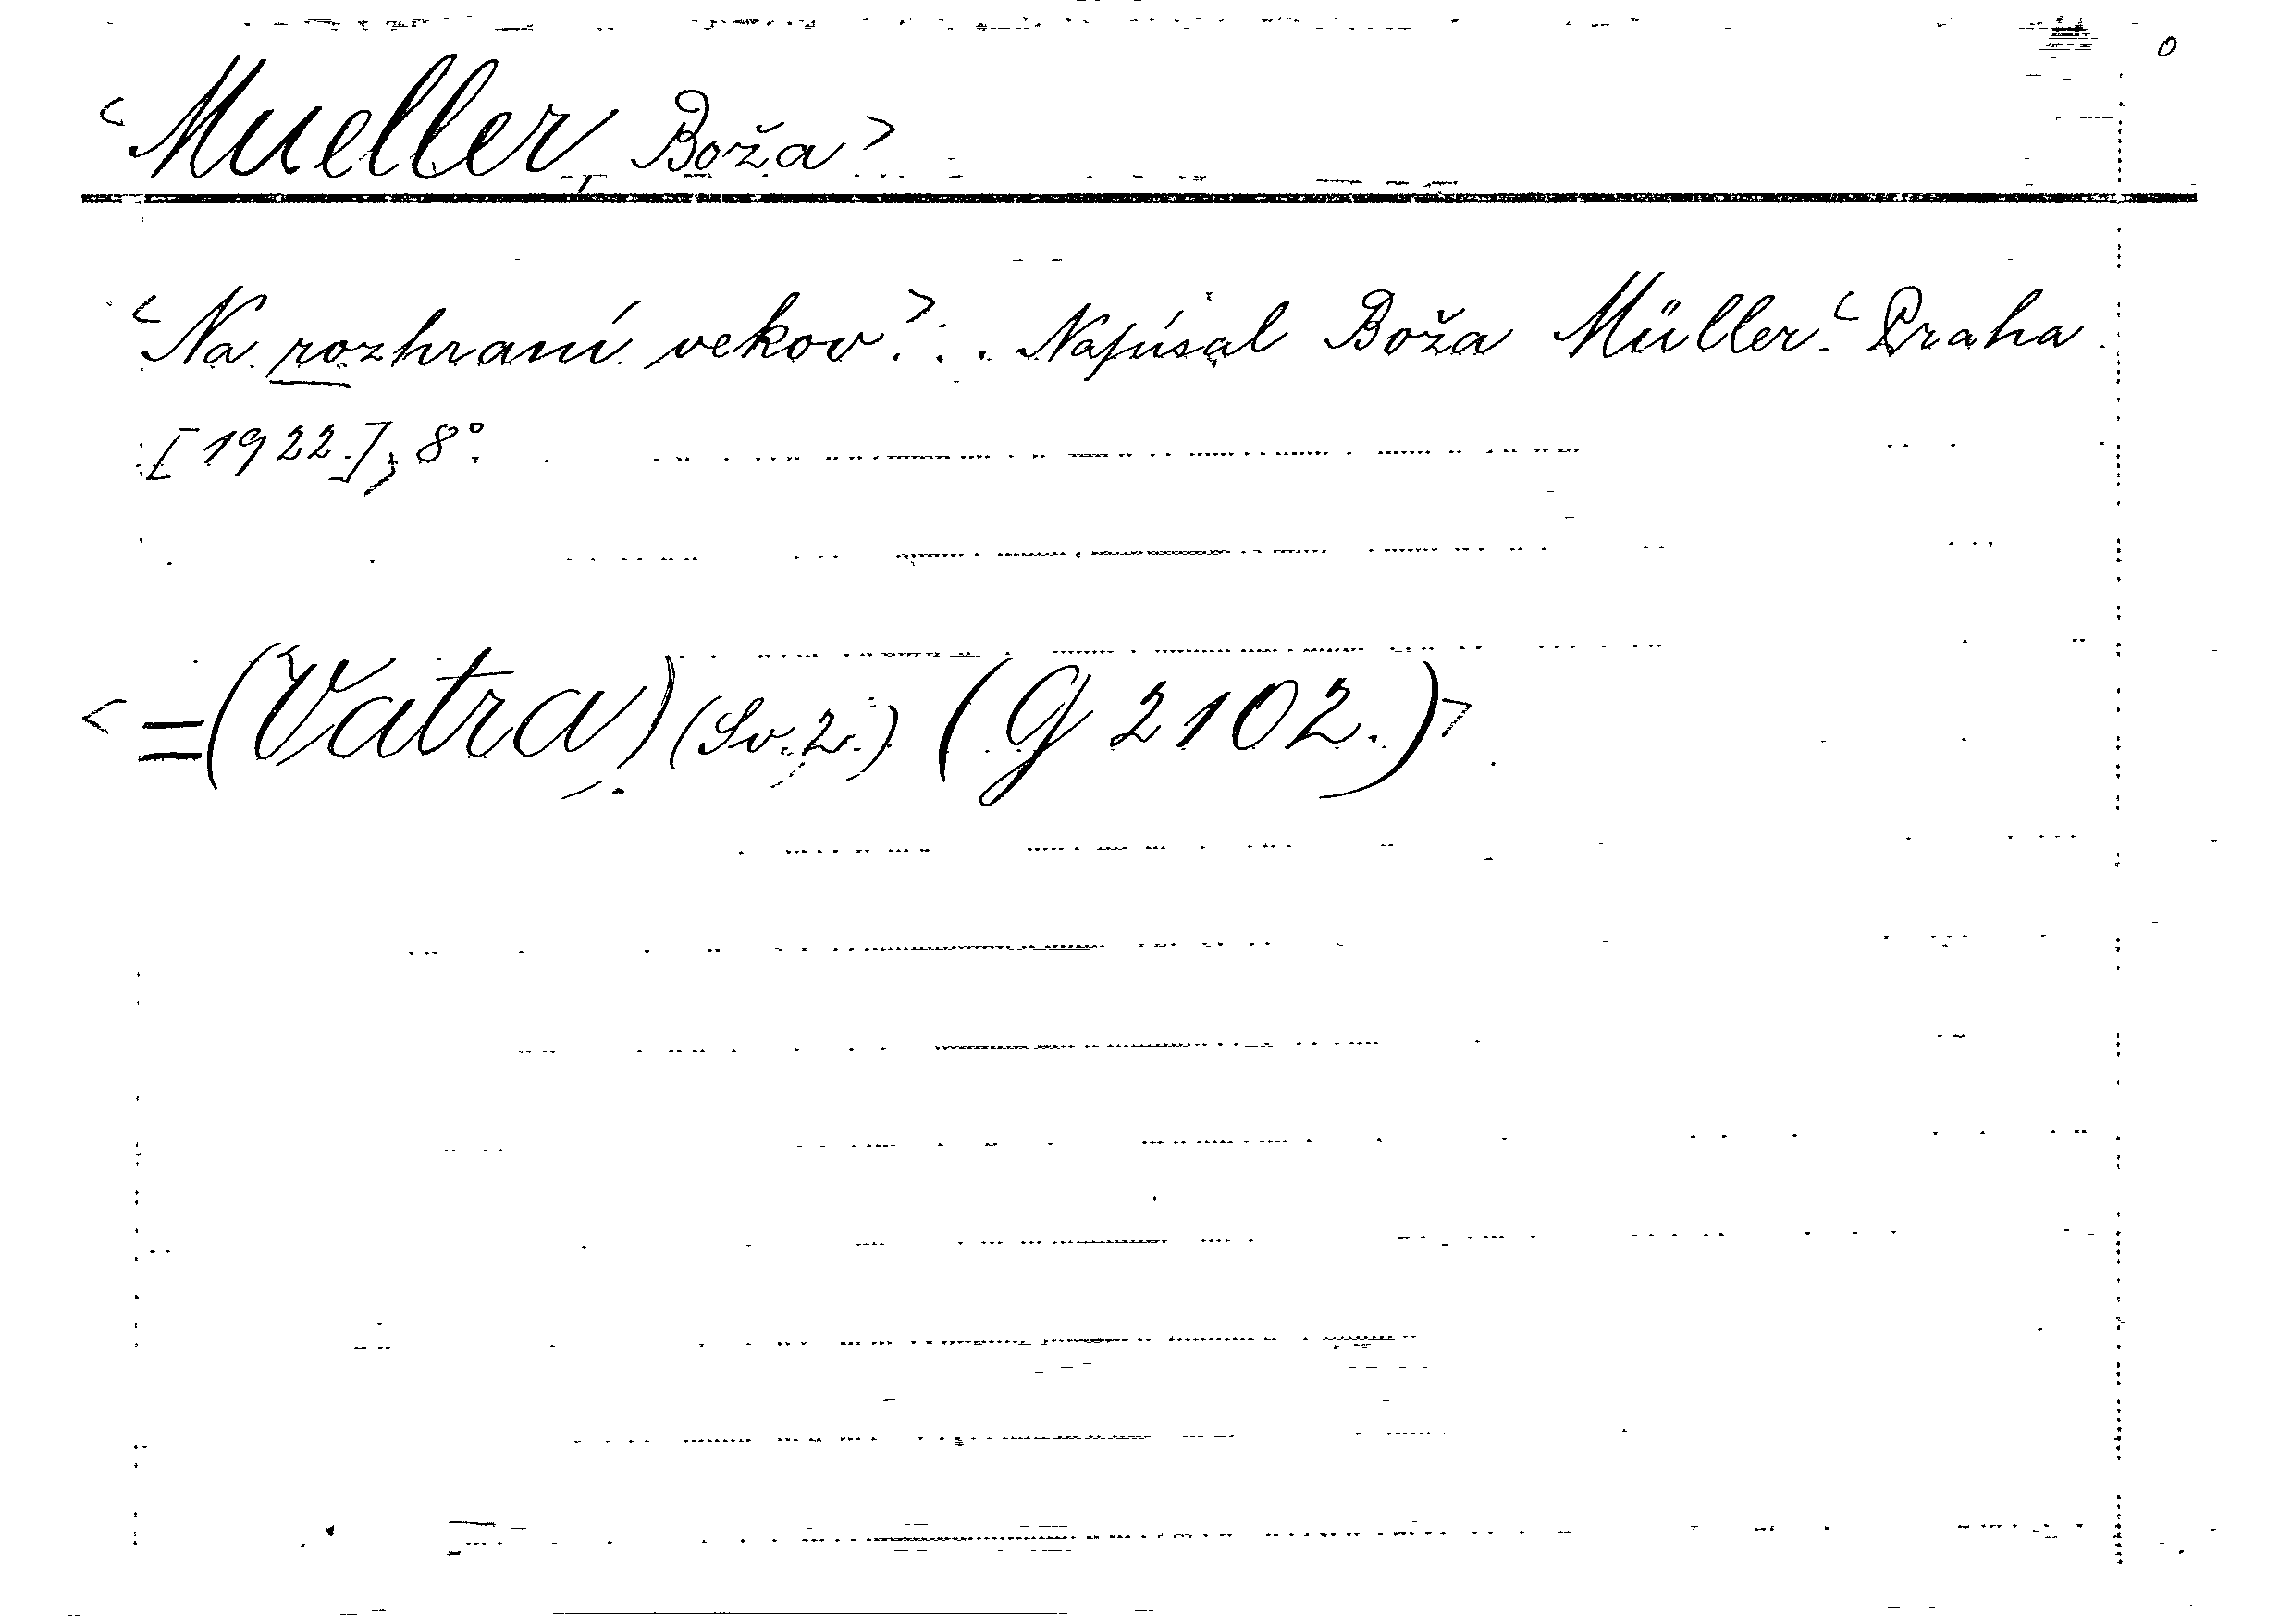 o
<Mueller, Boža>
<Na rozhraní vekov>... Napísal Boža Müller.< Praha
[1922.], 8°.
<=(Vatra) (Sv. 2.) (G 2102.)>